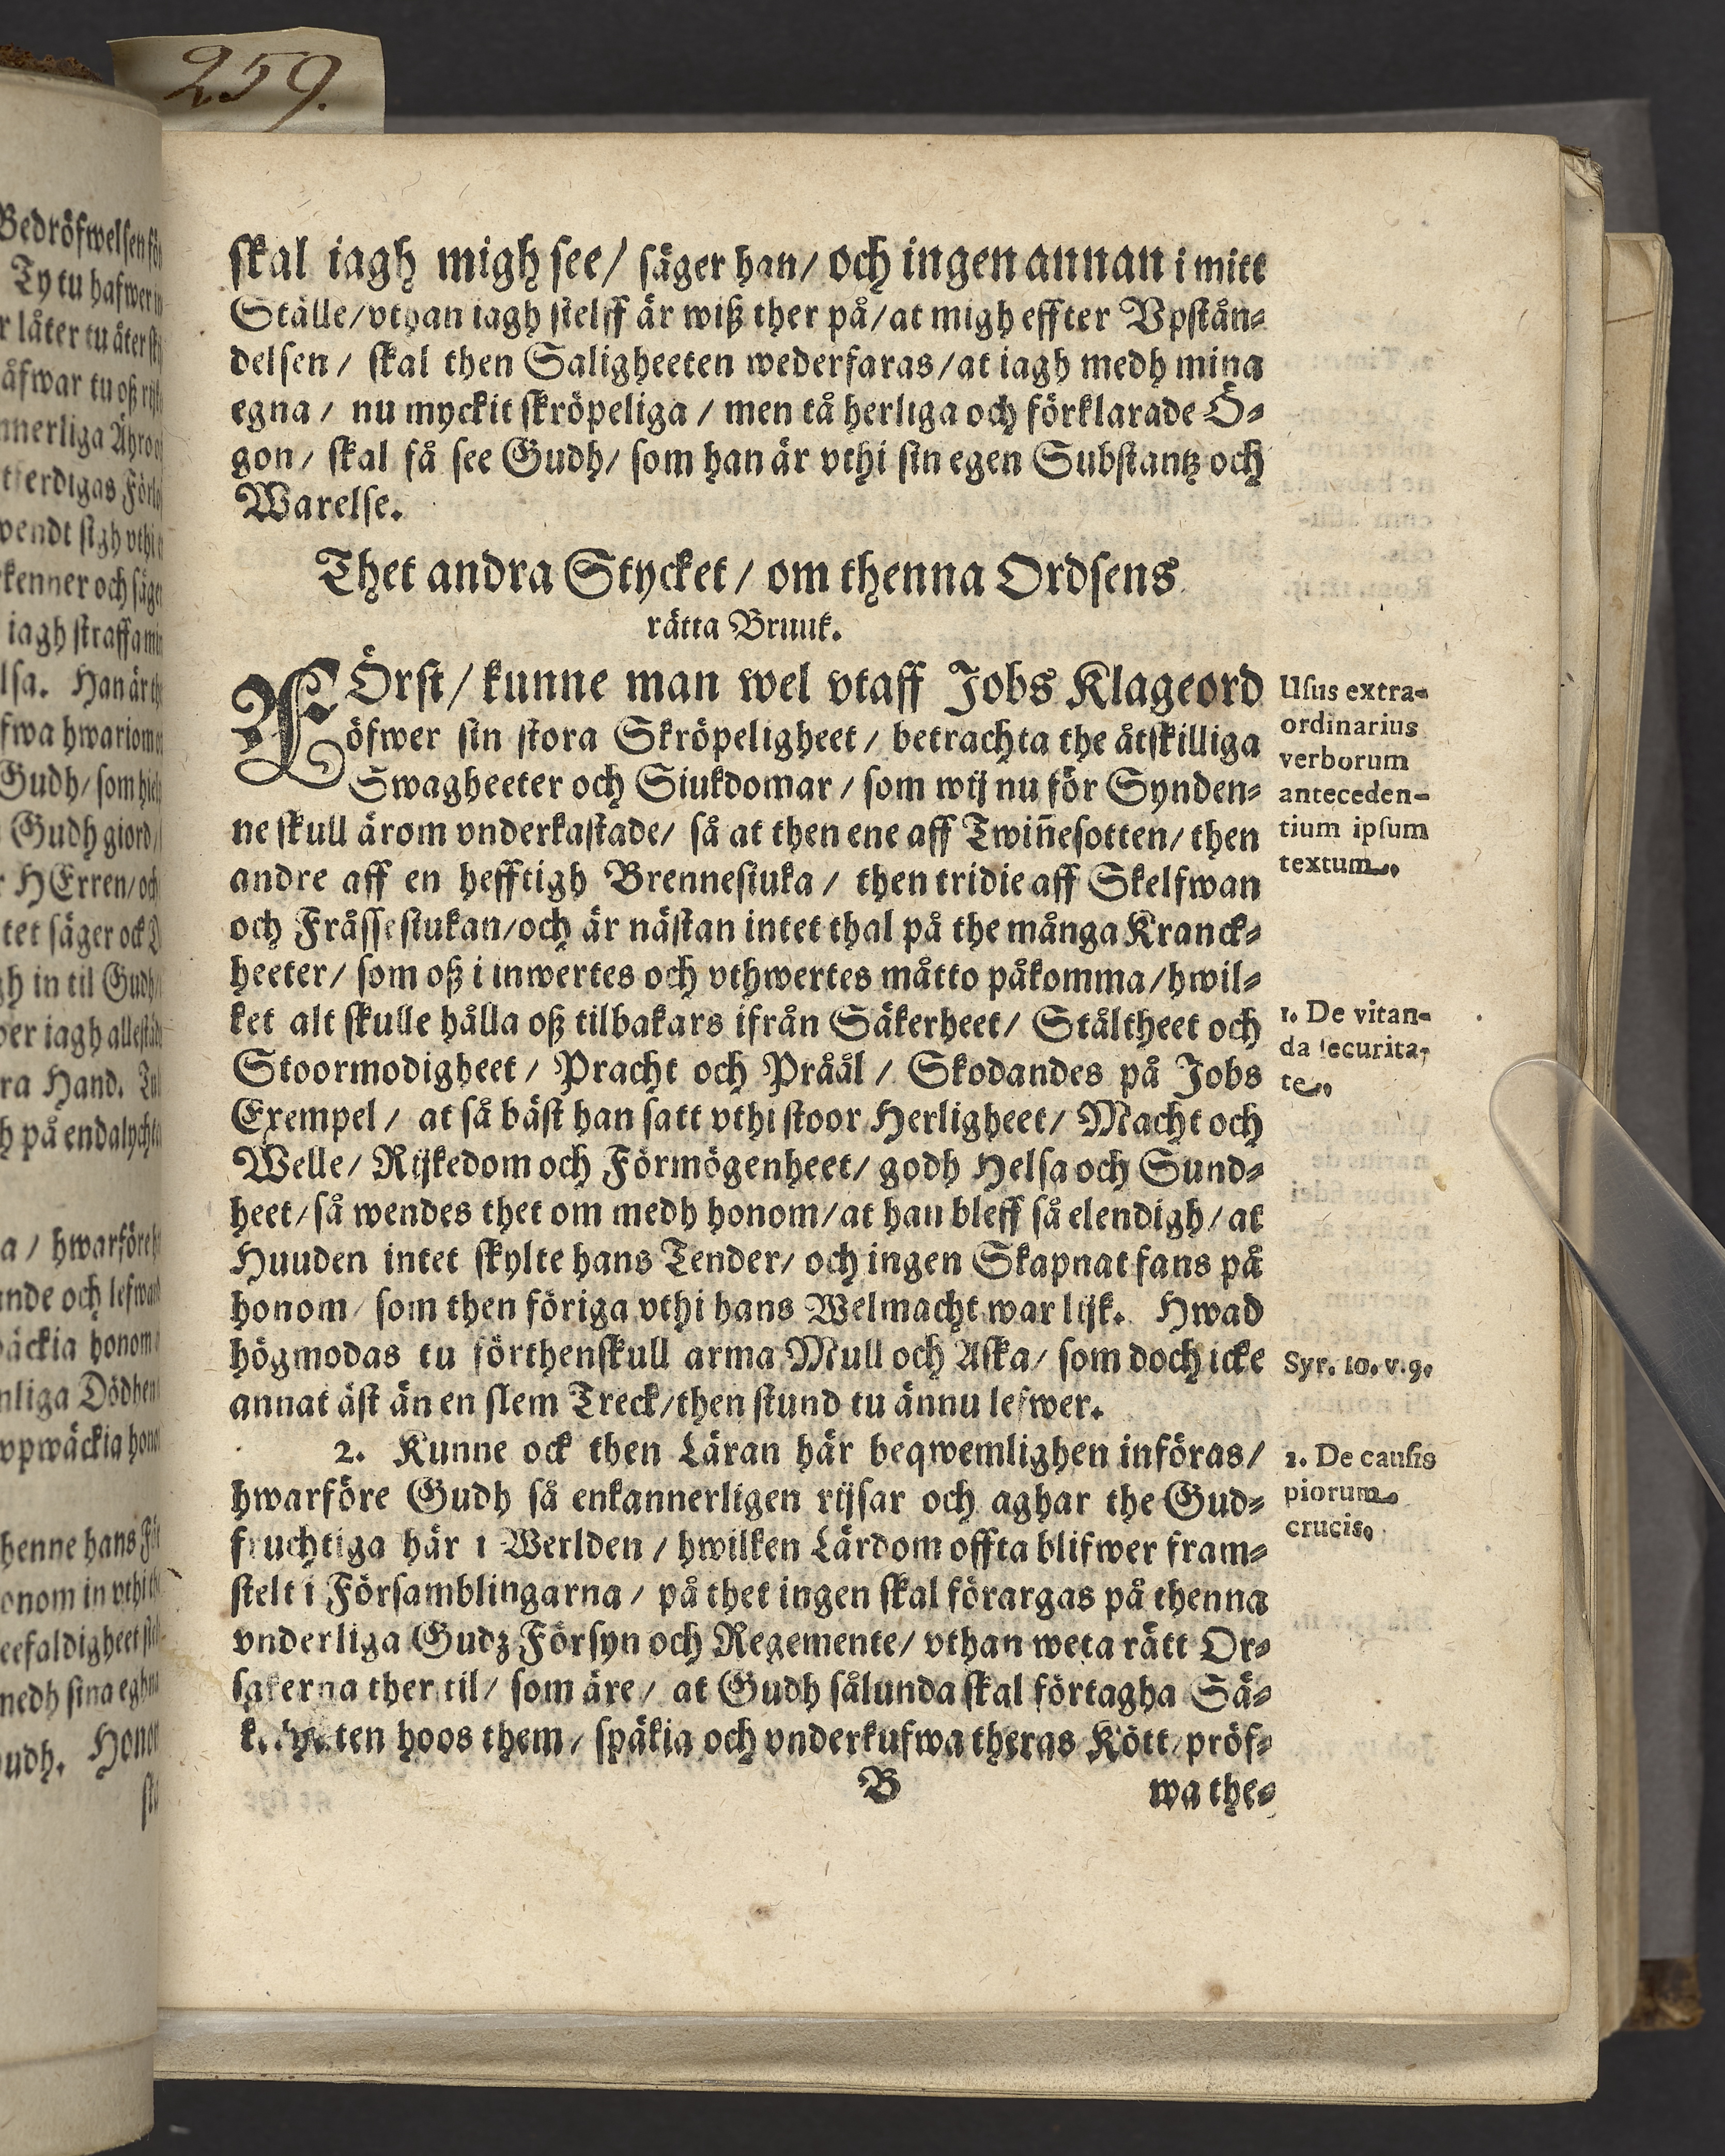 259.
skal iagh migh see/ säger han/ och ingen annan i mitt
Ställe/ vthan iagh sielff är wiß ther på/ at migh effter Vpstån-
delsen/ skal then Saligheeten wederfaras/ at iagh medh mina
egna/ nu myckit skröpeliga/ men tå herliga och förklarade Ö-
gon/ skal få see Gudh/ som han är vthi sin egen Substantz och
Warelse.
Thet andra Stycket/ om thenna Ordsens
rätta Bruuk.
FÖrst/ kunne man wel vtaff Jobs Klageord
öfwer sin stora Skröpeligheet/ betrachta the åtskilliga
Swagheeter och Siukdomar/ som wij nu för Synden-
ne skull ärom vnderkastade/ så at then ene aff Twiñesotten/ then
andre aff en hefftigh Brennesiuka/ then tridie aff Skelfwan
och Fråssesiukan/ och är nästan intet thal på the många Kranck-
heeter/ som oß i inwertes och vthwertes måtto påkomma/ hwil-
ket alt skulle hålla oß tilbakars ifrån Säkerheet/ Ståltheet och
Stoormodigheet/ Pracht och Pråål/ Skodandes på Jobs
Exempel/ at så bäst han satt vthi stoor Herligheet/ Macht och
Welle/ Rijkedom och Förmögenheet/ godh Helsa och Sund-
heet/ så wendes thet om medh honom/ at han bleff så elendigh/ at
Huuden intet skylte hans Tender/ och ingen Skapnat fans på
honom/ som then föriga vthi hans Welmacht war lijk. Hwad
högmodas tu förthenskull arma Mull och Aska/ som doch icke
annat äst än en slem Treck/ then stund tu ännu lefwer.
2. Kunne ock then Läran här beqwemlighen införas/
hwarföre Gudh så enkannerligen rijsar och aghar the Gud-
fruchtiga här i Werlden/ hwilken Lärdom offta blifwer fram-
stelt i Församblingarna/ på thet ingen skal förargas på thenna
vnderliga Gudz Försyn och Regemente/ vthan weta rätt Or-
sakerna ther til/ som äre/ at Gudh sålunda skal förtagha Sä-
ten hoos them/ späkia och vnderkufwa theras Kött/ pröf-
B
wa the-
Usus extra-
ordinarius
verborum
anteceden-
tium ipsum
textum.
1. De vitan-
da securita-
te.
Syr. 10. v. 9.
2. De causis
piorum
crucis.